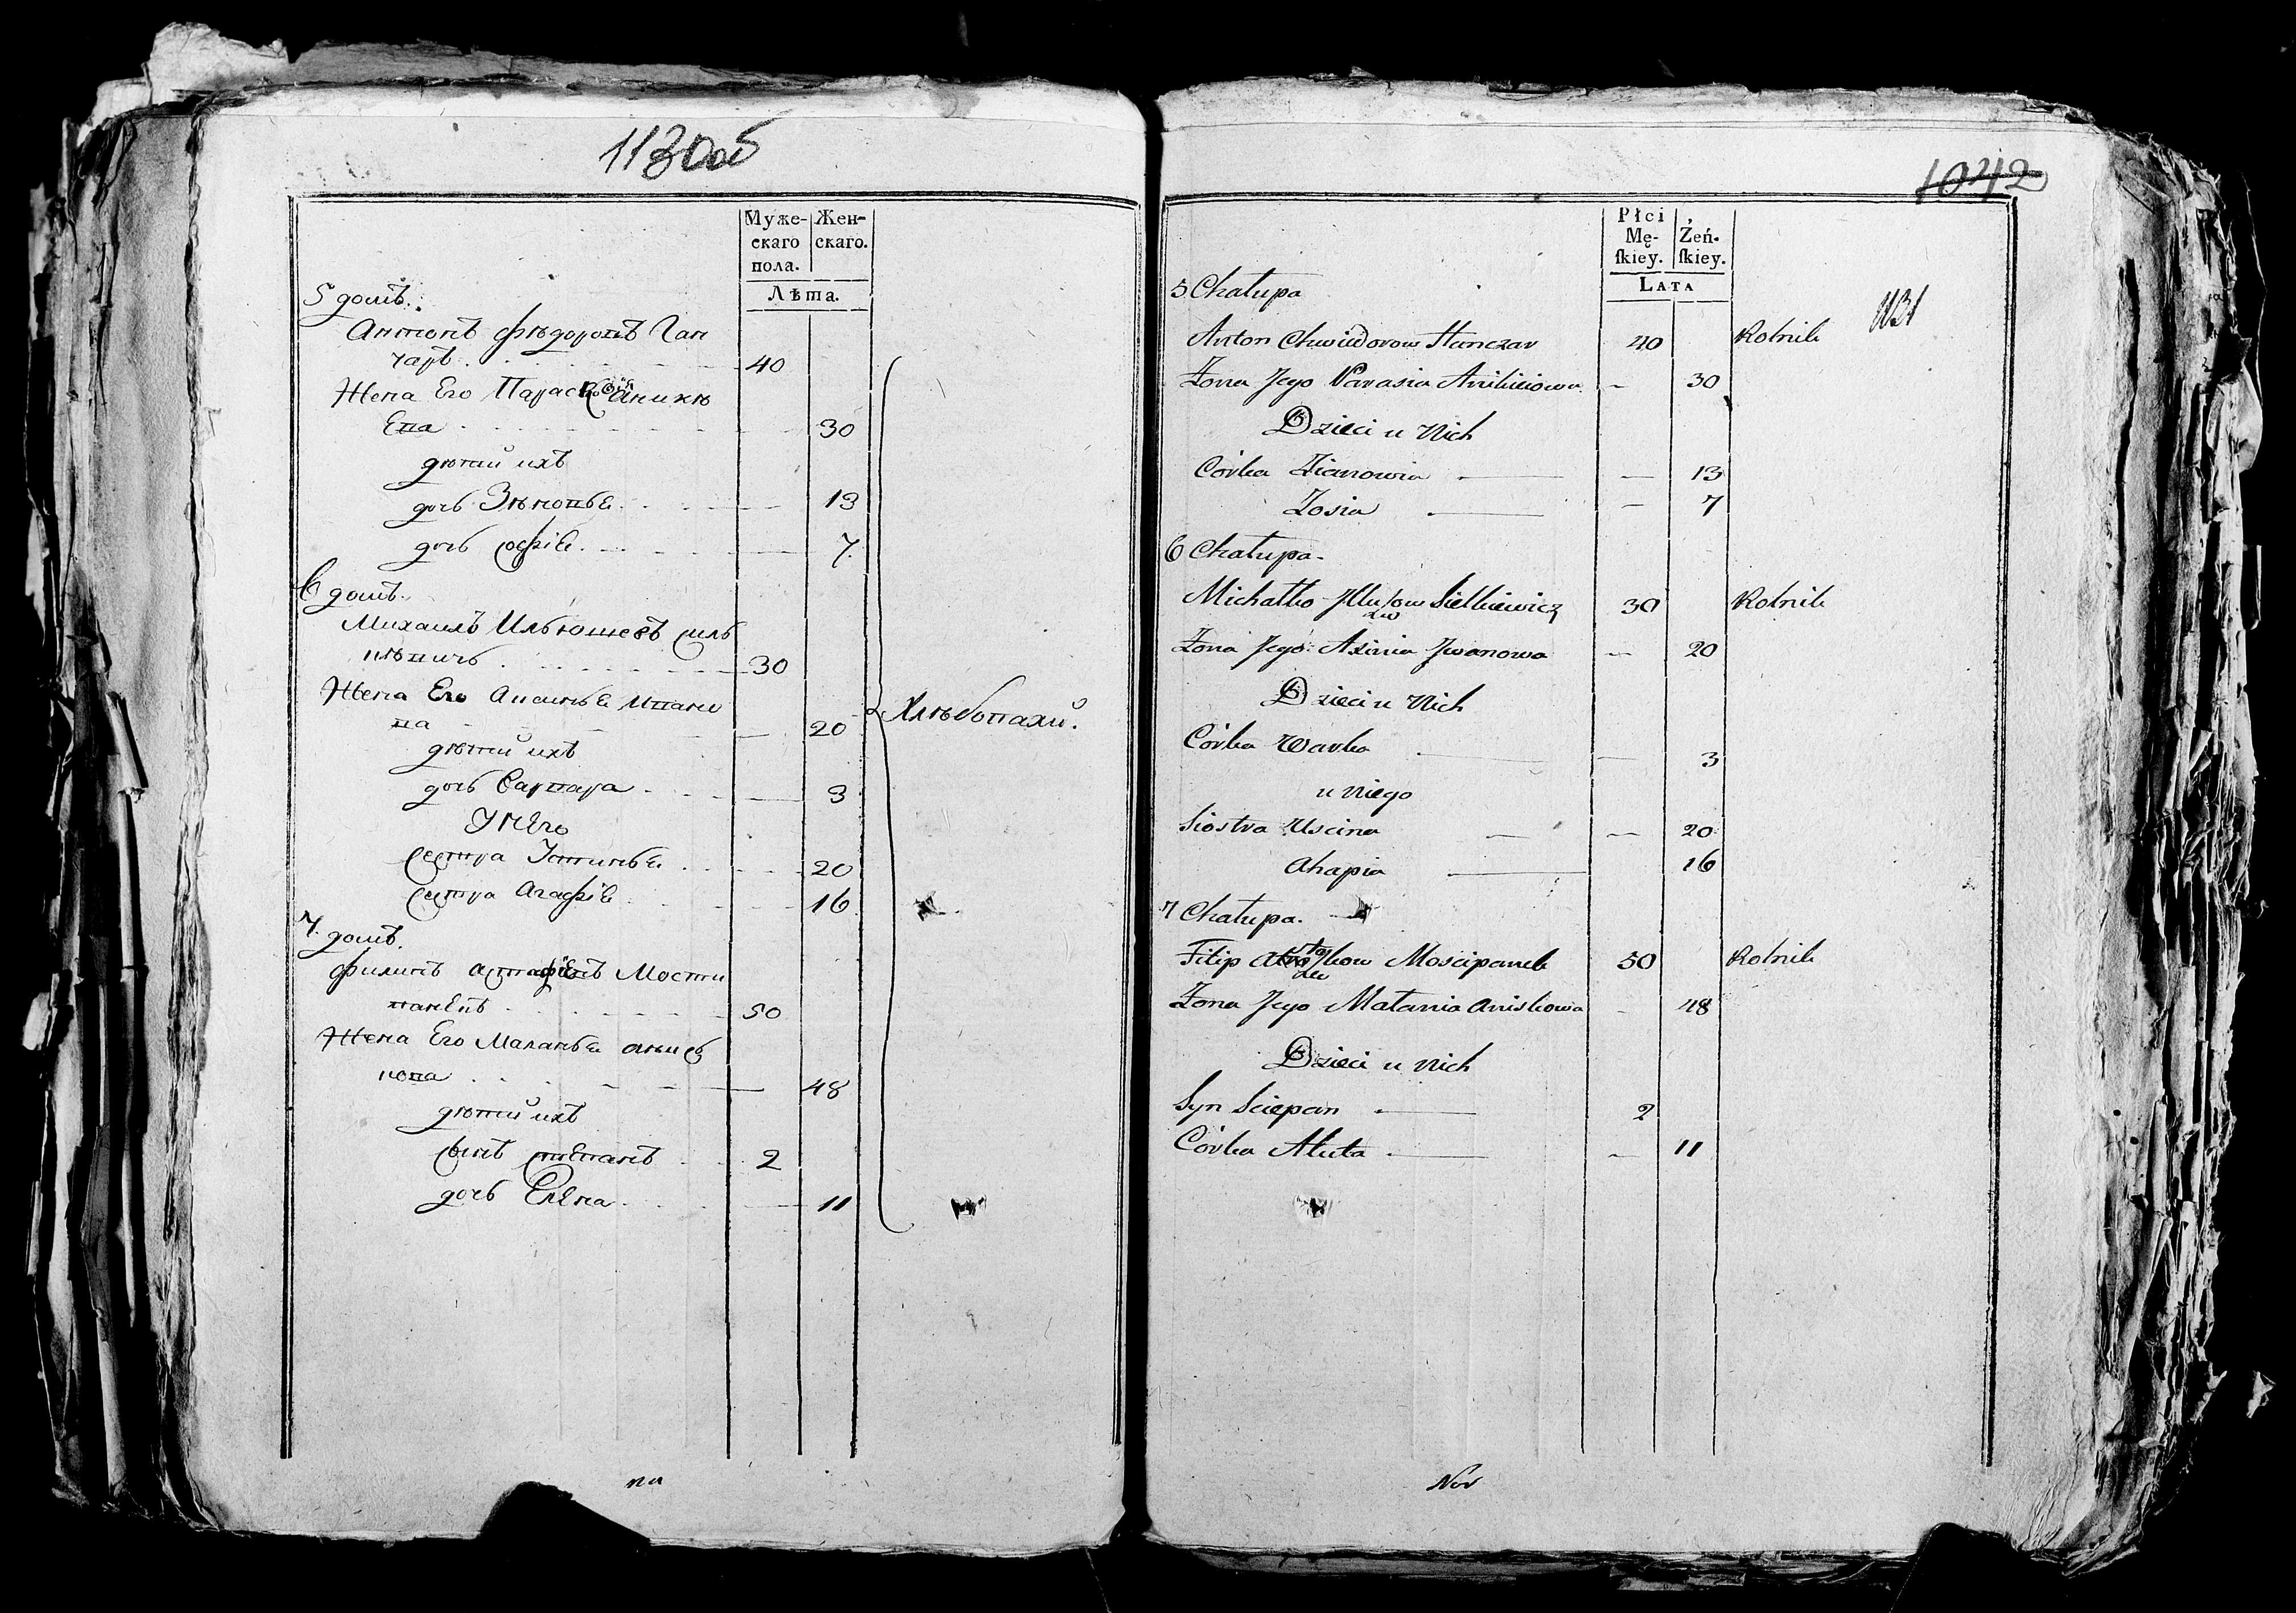 1130об
Муже- Жен-
скаго скаго.
пола.
Лѣта.
5 домъ.
Антонъ Фѣдоровъ Ган
чаръ 40
Жена Его Парасковія Аникѣ
Ева 30
дѣтей ихъ
дочь Зѣновье 13
дочь Софіе 7.
6 домъ.
Михаилъ Ильюшевъ Силь
цѣвичъ 30
Жена Его Аксинье Ивано
ва 20
дѣтей ихъ
дочь Варвара 3
У него
Сестра Устинье 20
Сестра Агафіе 16
Хлѣбопахи.
7. домъ.
Филипъ Астафіевъ Мости
панецъ 50
Жена Его Маланье Анись
кова 48
дѣтей ихъ
Сынъ Степанъ 2
дочь Елена 11
на
1042
Płci Żeń-
Mę- skiey.
skiey.
LATA
1131
5 Chałupa
Anton Chwiedorow Hanczar 40 Rolnik
Zona Jego Parasia Anikieiowa - 30
Dzieci u Nich
Córka Zianowia - 13
Zosia - 7
6 Chałupa.
Michałko Sielkiewicz 30 Rolnik
Zona Jego Axinia Jwanowa - 20
Dzieci u Nich
Córka Warka - 3
u Niego
Siostra Uscina - 20
Ahapia 16
7 Chałupa.
Filip Moscipanek 50 Rolnik
Zona Jego Matania Aniskowa - 48
Dzieci u Nich
Syn Sciepan 2
Córka Aluta - 11